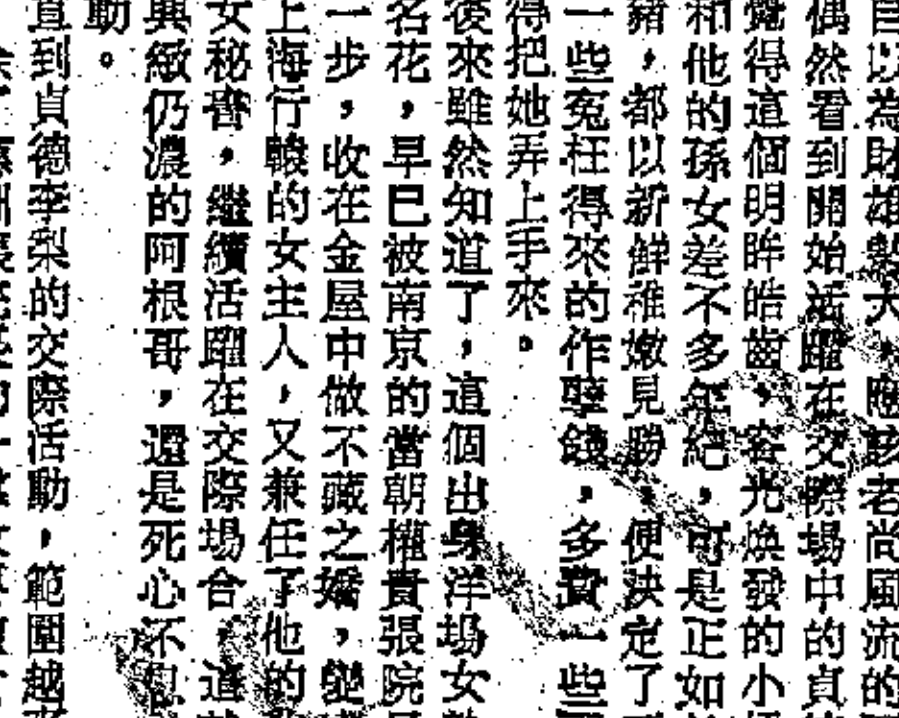 以為財雄勢大，應該老尚風流的
偶然看到開始活躍在交際場中的貞
覺得這個明眸皓齒，容光煥發的小
和他的孫女差不多年紀，可是正如
豬，都以新鮮稚嫩見勝，便決定了
一些冤枉得來的作孽錢，多費一些
得把她弄上手來。
後來雖然知道了，這個出身洋場女
名花，早已被南京的當朝權貴張院
一步，收在金屋中做不藏之嬌，變
上海行轅的女主人，又兼任了他的
女秘書，繼續活躍在交際場合，這
興緻仍濃的阿根哥，還是死心不息
動。
直到貞德李梨的交際活動，範圍越